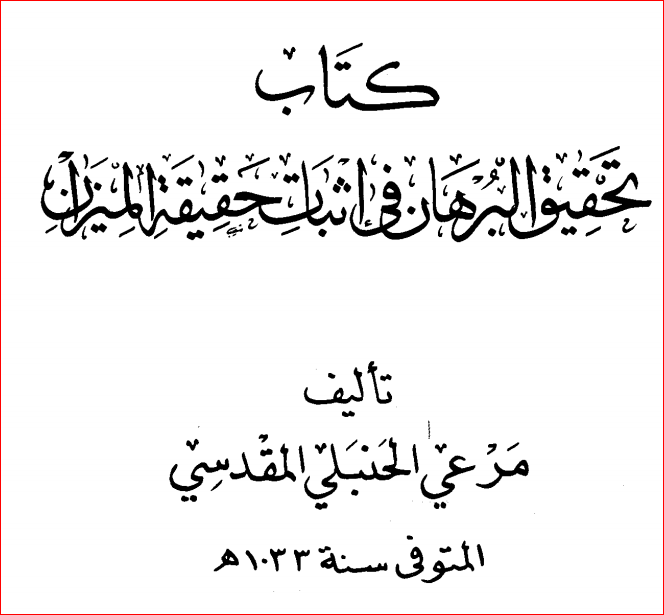 كتَاب
تحَقِيق البُرهَان فى إثبَاتِ حَقِيقَةِ المِيزَانْ
تأليف
مَرْعي الحَنبَلي المقْدسِي
المتوفى سنة ١٠٣٣ هـ